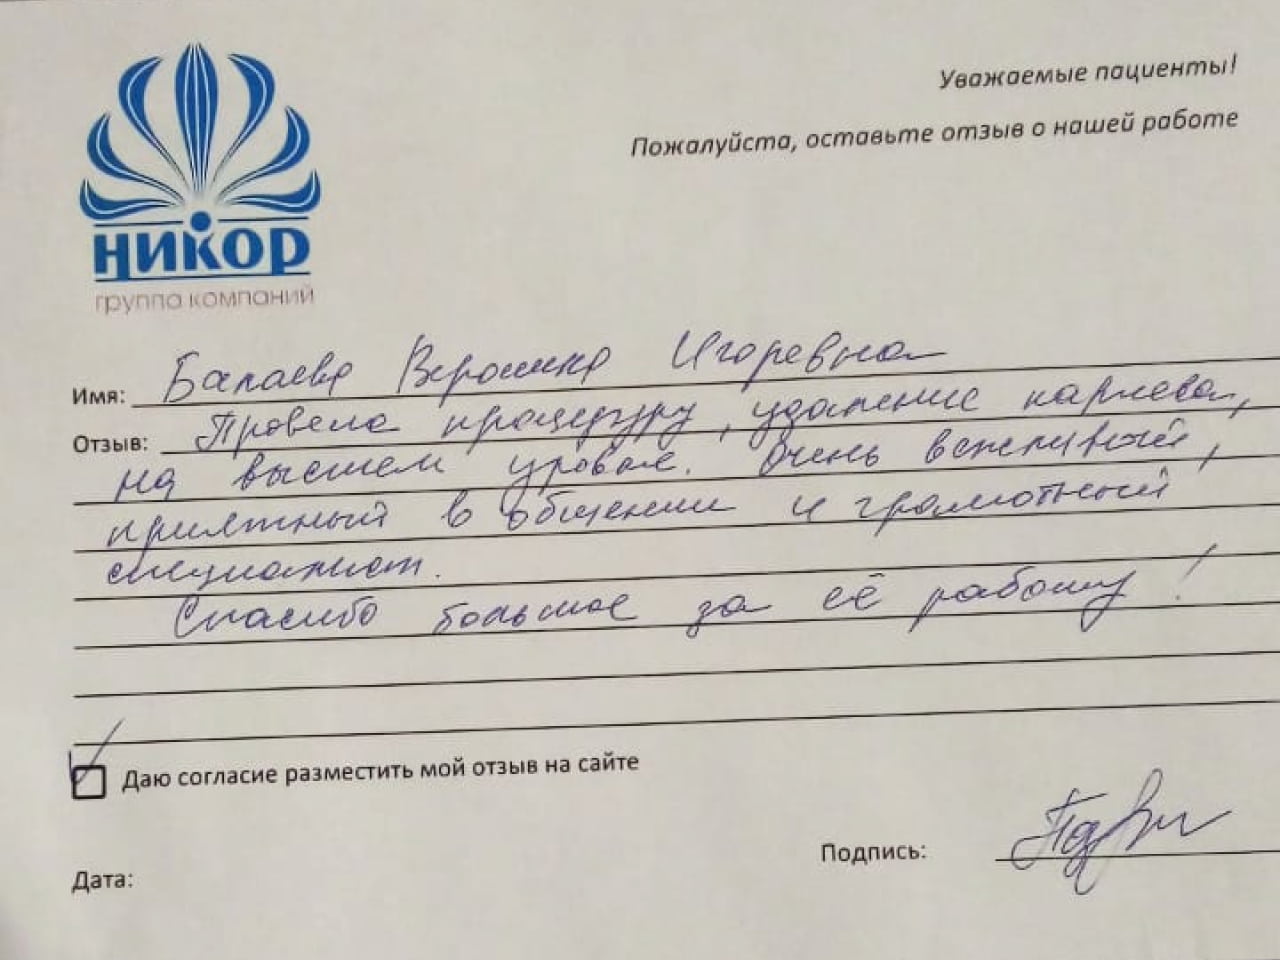 Уважаемые пациенты!
Пожалуйста, оставьте отзыв о нашей работе
НИКОР
группа компаний
Имя: Балаева Вероника Игоревна
Отзыв: Провела процедуру, удаление
на высшем уровне. Очень вежливый,
приятный в общении и грамотный
специалист.
Спасибо большое за её работу!
Даю согласие разместить мой отзыв на сайте
Подпись:
Дата: